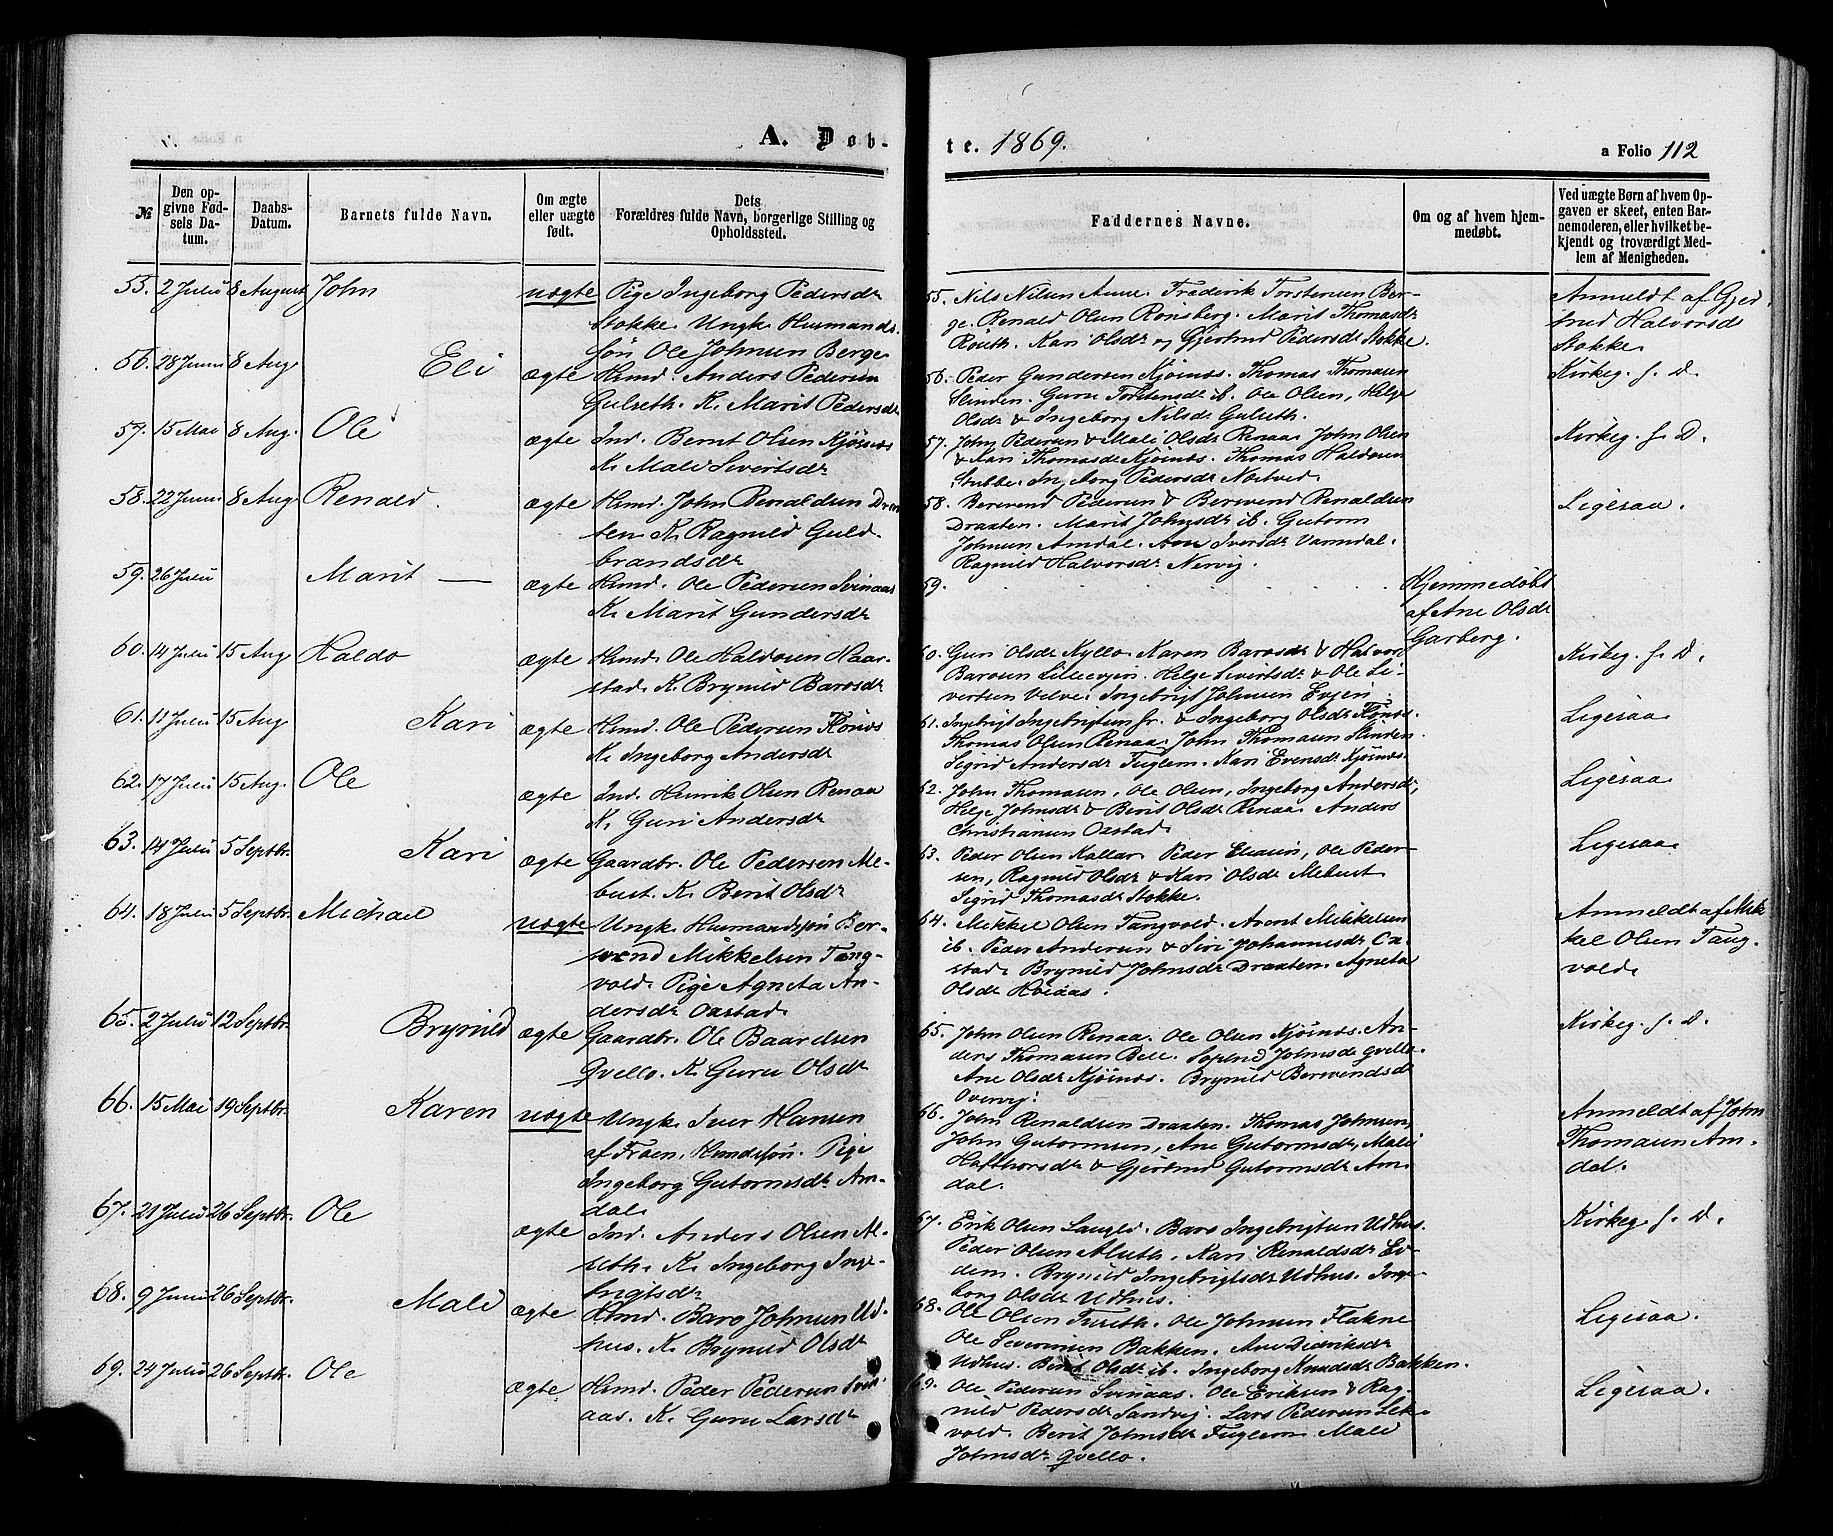 A. Døb-
te. 1869.
a Folio 112
№
Den op-
givne Fød-
sels Da-
tum.
Daabs-
Datum.
Barnets fulde Navn.
Om ægte
eller uægte
født.
Dets
Forældres fulde Navn, borgerlige Stilling og
Opholdssted.
Faddernes Navne.
Om og af hvem hjem-
medøbt.
Ved uægte Børn af hvem Op-
gaven er skeet, enten Bar-
nemoderen, eller hvilket be-
kjendt og troværdigt Med-
lem af Menigheden.
55. 2 Juliu 8 August John uægte Pige Ingeborg Pedersdr
Stokke. Ungk. Husmands-
søn Ole Johnsen Berge
55. Nils Nilsen Aune. Frederik Torstensen Ber-
ge. Renald Olsen Ronsberg. Marit Thomasdr
Routh. Kari Olsdr og Gjertrud Pedersdr Stokke.
Anmeldt af Gjer-
trud Halvorsdr
Stokke.
56. 28 Juniu 8 Aug. Eli ægte Husmd. Anders Pedersen
Gulseth. K. Marit Pedersdr
56. Peder Gundersen Kjøsnæs. Thomas Thomasen
Slinden. Guru Torstensdr ib. Ole Olsen, Helge
Olsdr & Ingeborg Nilsdr Gulseth.
Kirkeg. f. D.
57. 15 Mai 8 Aug. Ole ægte Ind. Bernt Olsen Kjøsnæs
K. Mali Sivertsdr
57. John Pedersen & Mali Olsdr Renaa. John Olsen
& Kari Thomasdr Kjøsnæs. Thomas Haldorsen
Stubbe. Ingeborg Pedersdr Notved.
Kirkeg. f. D.
58. 22 Juniu 8 Aug. Renald. ægte Husmd. John Renaldsen Draa
ten K. Ragnild Guld-
brandsdr
58. Berevend Pedersen & Berevend Renaldsen
Draaten. Marit Johnsdr ib. Gutorm
Johnsen Amdal. Ane Iversdr Varmdal.
Ragnild Halvorsdr Nervig.
Ligesaa.
59. 26 Juliu Marit — ægte Husmd. Ole Pedersen Svinaas
K. Marit Gundersdr
59.
Hjemmedøbt
af Ane Olsdr
Garberg.
60. 14 Juliu 15 Aug Haldo ægte Husmd. Ole Haldosen Haar-
stad. K. Brynild Barosdr
60. Guri Olsdr Kyllo. Karen Barosdr & Halvor
Barosen Lilleevjen. Helge Sivertsdr & Ole Si-
vertsen Velve. Ingebrigt Johnsen Evjen.
Kirkeg. f. D.
61. 11 Juliu 15 Aug. Kari ægte Husmd. Ole Pedersen Flønæs
K. Ingeborg Andersdr
61. Ingebrigt Ingebrigtsen jr. & Ingeborg Olsdr Flønæs.
Thomas Olsen Renaa. John Thomasen Slinden.
Sigrid Andersdr Fuglem. Kari Evensdr Kjøsnæs.
Ligesaa
62. 17 Juliu 15 Aug. Ole ægte Ind. Henrik Olsen Renaa
K. Guri Andersdr
62. John Thomasen, Ole Olsen, Ingeborg Andersdr,
Helge Johnsdr & Berit Olsdr Renaa. Anders
Christiansen Oustad.
Ligesaa
63. 14 Juliu 5 Septbr. Kari ægte Gaardbr. Ole Pedersen Me-
bust. K. Berit Olsdr
63. Peder Olsen Kallar. Peder Eliasen, Ole Peder-
sen, Ragnild Olsdr & Kari Olsdr Mebust
Sigrid Thomasdr Stokke.
Ligesaa
64. 18 Juliu 5 Septbr. Michael uægte Ungk. Husmandssøn Ber-
wend Mikkelsen Tang-
vold. Pige Agneta An-
dersdr Oustad.
64. Mikkel Olsen Tangvold. Arnt Mikkelsen
ib. Peder Andersen & Siri Johannesdr Ou-
stad. Brynild Johnsdr Draaten. Agneta
Olsdr Hoiaas.
Anmeldt af Mik-
kel Olsen Tang-
vold.
65. 2 Juliu 12 Septbr. Brynild ægte Gaardbr. Ole Baardsen
Qvello. K. Guru Olsdr
65. John Olsen Renaa. Ole Olsen Kjøsnæs. An-
ders Thomasen Bell. Johnsdr Qvello.
Ane Olsdr Kjøsnæs. Brynild Berwendsdr
Overvig.
Kirkeg. f. D.
66. 15 Mai 19 Septbr. Karen uægte Ungk. Iver Hansen
af Troen, Husmdssøn. Pige
Ingeborg Gutormsdr Am-
dal.
66. John Renaldsen Draaten. Thomas Johnsen,
John Gutormsen, Ane Gutormsdr, Mali
Hafthorsdr & Gjertrud Gutormsdr Am-
dal.
Anmeldt af John
Thomasen Am-
dal.
67. 21 Juliu 26 Septbr. Ole ægte Ind. Anders Olsen Al-
seth. K. Ingeborg Inge-
brigtsdr
67. Erik Olsen. Baro Ingebrigtsen Udhus.
Peder Olsen Alseth. Kari Renaldsdr Ev-
dem. Brynild Ingebrigtsdr Udhus. Inge-
borg Olsdr Udhus.
Kirkeg. f. D.
68. 9 Juniu 26 Septbr. Mali ægte Husmd. Baro Johnsen Ud-
hus. K. Brynild Olsdr
68. Ole Olsen Tuseth. Ole Johnsen Flakne
Ole Severinsen Bakken. Ane Didriksdr
Udhus. Berit Olsdr ib. Ingeborg Knudsdr Bakken.
Ligesaa.
69. 24 Juliu 26 Septbr. Ole ægte Husmd. Peder Pedersen Svin-
aas. K. Guru Larsdr
69. Ole Pedersen Svinaas. Ole Eriksen & Rag-
nild Pedersdr Sandvig. Lars Pedersen Lek-
vold. Berit Johnsdr Fuglem. Mali
Johnsdr Qvello.
Ligesaa.